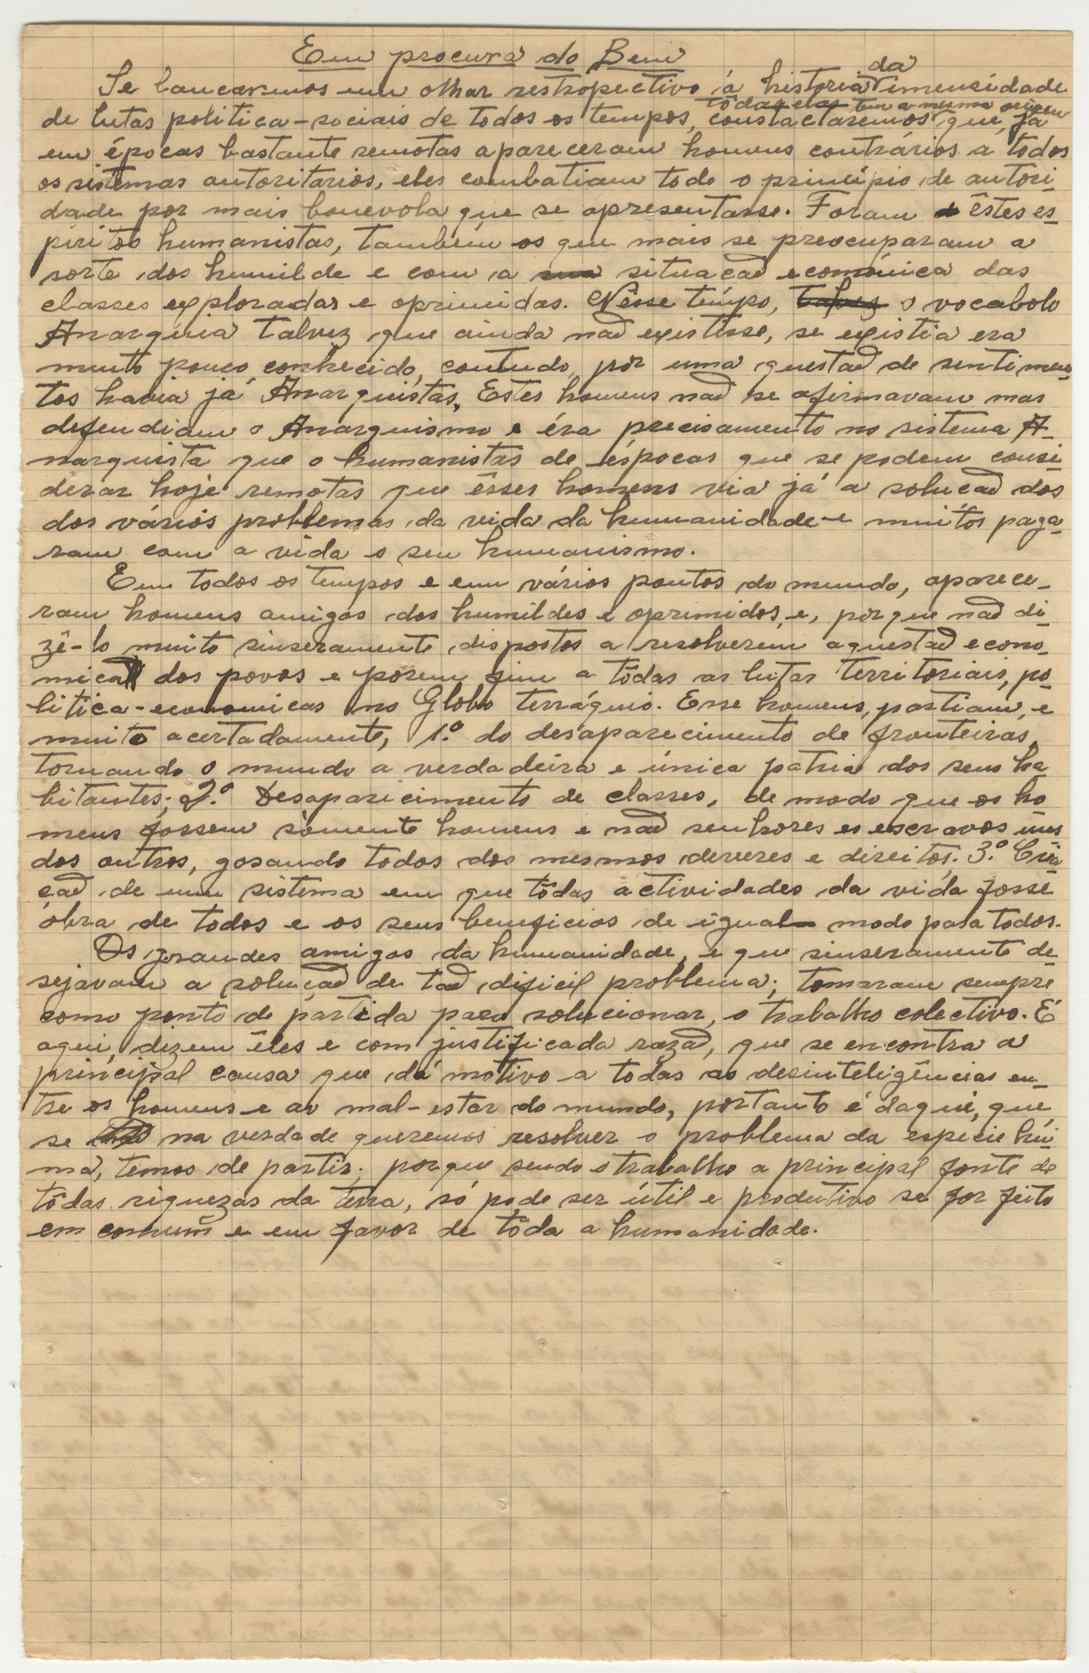 Em procura do Bem
Se lancarmos um olhar restropectivo á historia da imensidade
de lutas politica-sociais de todos os tempos, constactaremos que, já
todas elas tem a mesma origem
em épocas bastante remotas apareceram homens contrários a todos
os sistemas autoritarios, eles combatiam todo o princípio de autori-
dade por mais benevola que se apresentasse. Foram êstes es-
piritos humanistas, tambêm os que mais se preocuparam a
sorte dos humilde e com a situacaõ económica das
classes exploradas e oprimidas. Nêsse tempo, talvez o vocabolo
Anarquia talvez que ainda naõ existisse, se existia era
muito pouco conhecido, contudo, por uma questaõ de sentimen-
tos havia já Anarquistas, Estes homens naõ se afirmavam mas
defendiam o Anarquismo e éra precisamento no sistema A-
narquista que o humanistas de éspocas que se podem consi-
derar hoje remotas que êsses homens via já a solucaõ dos
dos vários problemas da vida da humanidade e muitos paga-
ram com a vida o seu humanismo.
Em todos os tempos e em vários pontos do mundo, aparece-
ram homens amigos dos humildes e oprimidos, e, porque naõ di-
zê-lo muito sinseramente dispostos a resolverem aquestaõ econo-
mica dos povos e porem fim a tôdas as lutas territoriais, po-
litica-economicas no Globo terráquio. Esse homens, partiam, e
muito acertadamente, 1.º do desaparecimento de fronteiras,
tornando o mundo a verdadeira e única patria dos seus ha-
bitantes; 2.º Desaparicimento de classes, de modo que os ho
mens fossem sòmente homens e naõ senhores es escravos uns
dos outros, gosando todos dos mesmos deveres e direitos. 3.º Cria-
çaõ de um sistema em que tôdas actividades da vida fosse
óbra de todos e os seus beneficios de igual modo para todos.
Os grandes amigos da humanidade, e que sinseramente de-
sejavam a soluçaõ de taõ dificil problema; tomaram sempre
como ponto de partida para solucionar, o trabalho colectivo. É
aqui, dizem êles e com justificada razaõ, que se encontra a
principal causa que dá motivo a todas as desinteligências en-
tre os homens e ao mal-estar do mundo, portanto é daqui, que,
se na verdade queremos resolver o problema da espécie hú-
ma, temos de partir. porque sendo o trabalho a principal fonte de
tôdas riquezas da terra, só pode ser útil e produtivo se for feito
em comum e em favor de tôda a humanidade.